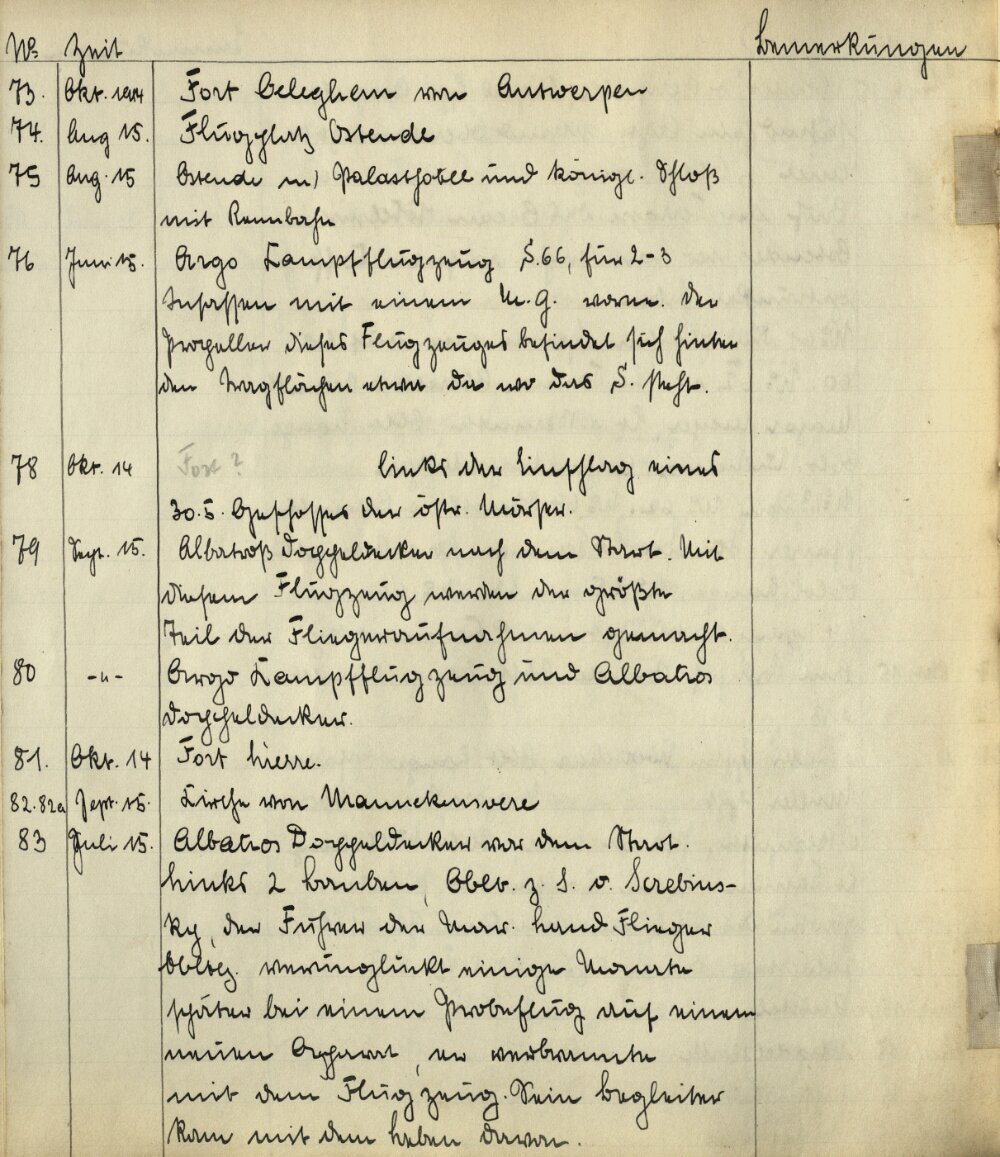 No Zeit Bemerkungen
73. Okt. 1914 Fort Oeleghem von Antwerpen
74. Aug 15. Flugplatz Ostende
75 Aug. 15 Ostende m) Palasthotel und königl. Schloß
mit Rennbahn
76 Juni 15. Argo Kampfflugzeug S.66, für 2-3
Insassen mit einem M.G. vorne. Der
Propeller dieses Flugzeuges befindet sich hinter
den Tragflächen etwa da wo das S. steht.
78 Okt. 14 Fort? Links der Einschlag eines
30.5. Geschosses der östr. Mörser.
79 Sept. 15. Albatroß Doppeldecker nach dem Start. Mit
diesem Flugzeug werden der größte
Teil der Fliegeraufnahmen gemacht.
80 -"- Argo Kampfflugzeug und Albatros
Doppeldecker.
81. Okt. 14 Fort Lierre.
82.82a Sept. 15. Kirche von Mannekensvere
83 Juli 15. Albatros Doppeldecker vor dem Start.
Links 2 Bauben, Oblt. z. S. v. Screbins-
ky, der Führer der Mar. Land Flieger
verunglückt einige Monate
später bei einem Probeflug auf einem
neuen Apparat, er verbrannte
mit dem Flugzeug. Sein Begleiter
kam mit dem Leben davon.